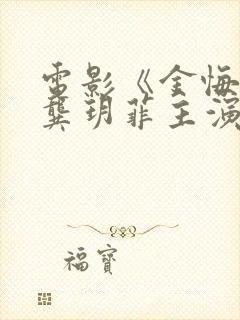 電影《金悔
龔玥菲主演
福寶